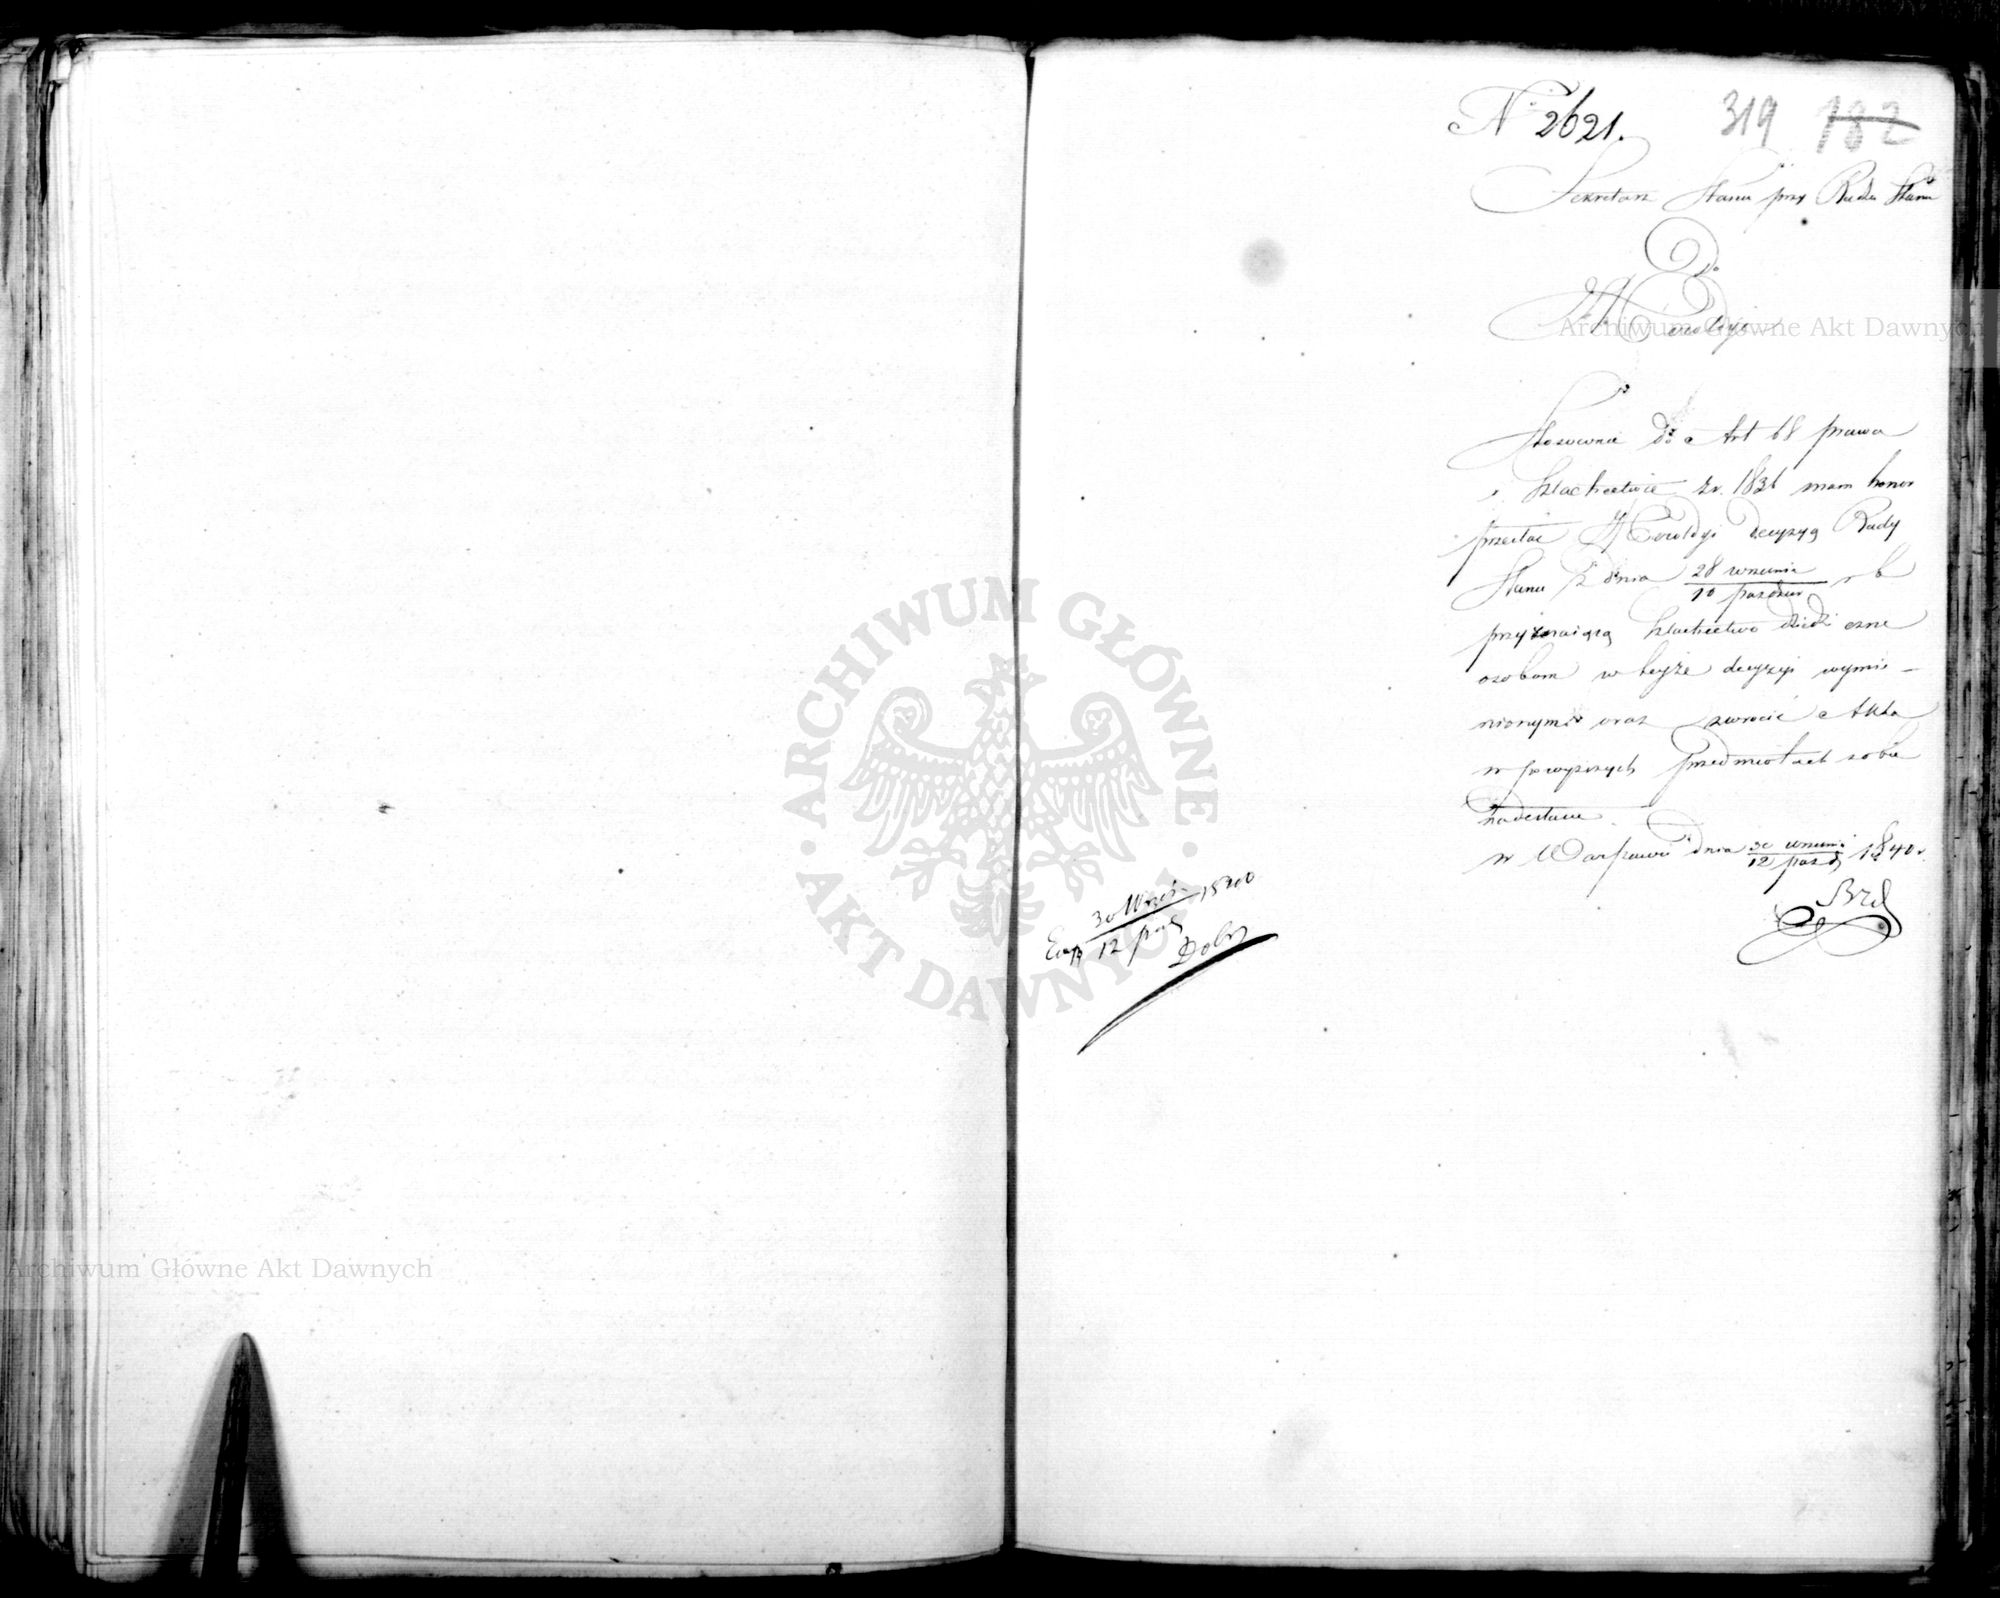 № 2621.
319 182
Sekretarz Stanu przy Radzie Stanu
Do
Heroldyi
Stosownie do Art 68 prawa
o Szlachectwie z r. 1836 mam honor
przesłać Heroldyi decyzyą Rady
Stanu z dnia 28 września / 10 paździer r b
przyznaiącą szlachectwo dziedziczne
osobom w tejże decyzyi wymie-
nionym oraz zwrócić Akta
w powyższych przedmiotach sobie
nadesłane.
w Warszawie dnia 30 wrześni / 12 paźd 1840 r.
30 Wrześ / 12 paźd 1840
Archiwum Główne Akt Dawnych
ARCHIWUM GŁÓWNE
AKT DAWNYCH
Archiwum Główne Akt Dawnych